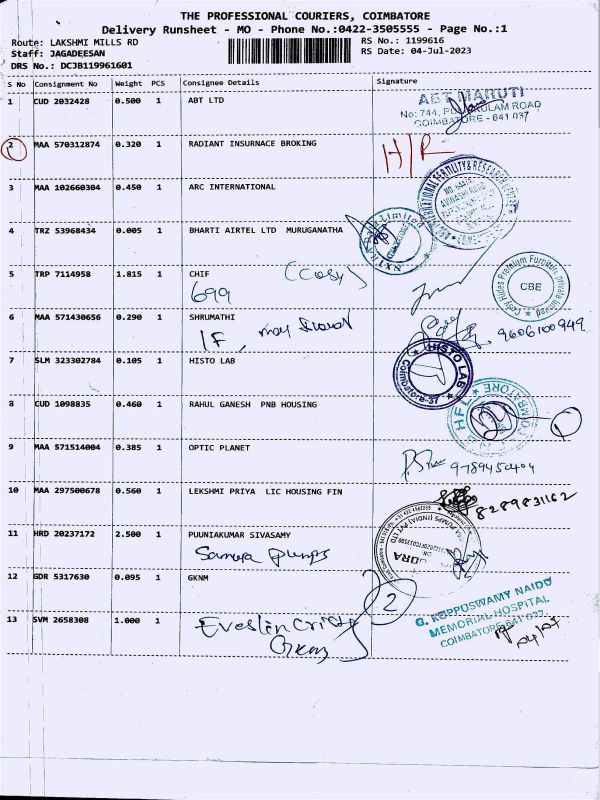 THE PROFESSIONAL COURIERS, COIMBATORE
Delivery Runsheet - MO - Phone No.:0422-3505555 - Page No.:1
Route: LAKSHMI MILLS RD
RS No.: 1199616
Staff: JAGADEESAN
RS Date: 04-Jul-2023
DRS No.: DCJB119961601
S No Consignment No Weight PCS Consignee Details Signature
1 CUD 2032428 0.500 1 ABT LTD
ABT MARUTI
COIMBATORE - 641 037
2 MAA 570312874 0.320 1 RADIANT INSURNACE BROKING
H/R
3 MAA 102660304 0.450 1 ARC INTERNATIONAL
4 TRZ 53968434 0.005 1 BHARTI AIRTEL LTD MURUGANATHA
5 TRP 7114958 1.815 1 CHIF
(Cosy)
699
Cosy Hides Premium Furniture private limited
CBE
6 MAA 571430656 0.290 1 SHRUMATHI
IF,
9606100949
7 SLM 323302784 0.105 1 HISTO LAB
HISTO LAB
Coimbatore-37
8 CUD 1098835 0.460 1 RAHUL GANESH PNB HOUSING
1
9 MAA 571514004 0.385 1 OPTIC PLANET
10 MAA 297500678 0.560 1 LEKSHMI PRIYA LIC HOUSING FIN
8289831162
11 HRD 20237172 2.500 1 PUUNIAKUMAR SIVASAMY
pumps
12 GDR 5317630 0.095 1 GKNM
2
G. KUPPUSWAMY NAIDU
MEMORIAL HOSPITAL
COIMBATORE 641 037.
13 SVM 2658308 1.000 1
Eveslin